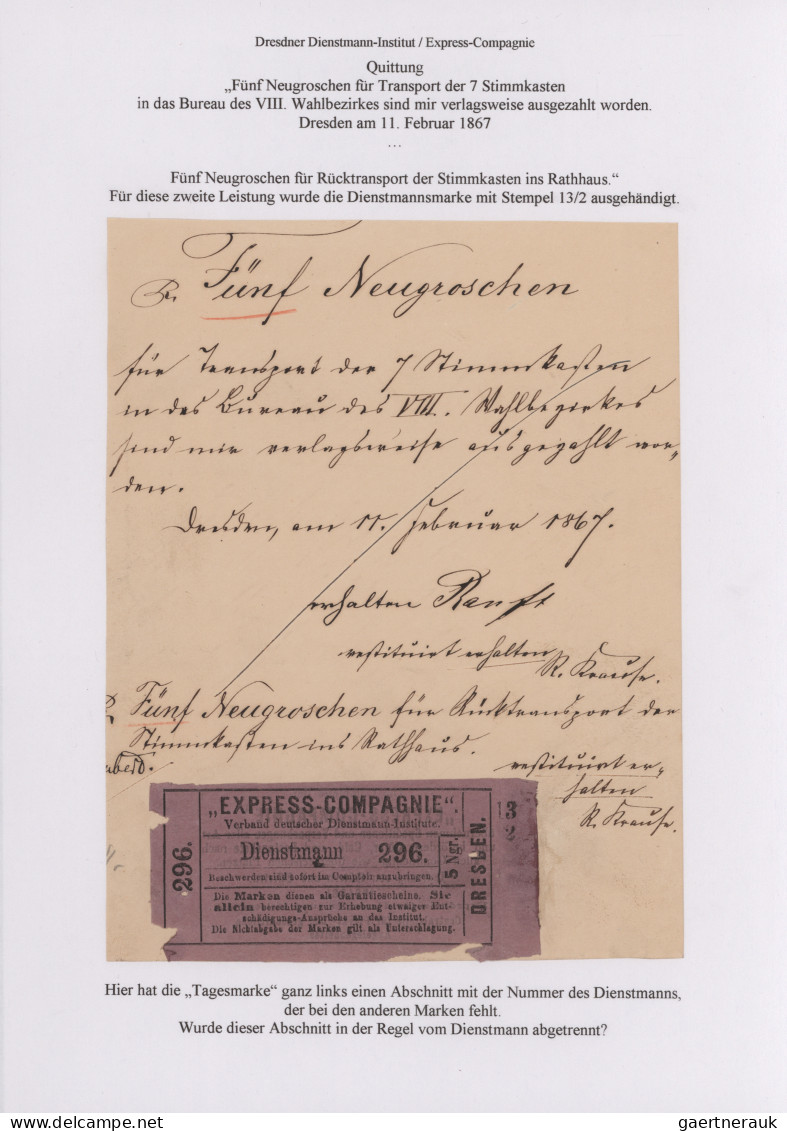 Dresdner Dienstmann-Institut / Express-Compagnie
Quittung
„Fünf Neugroschen für Transport der 7 Stimmkasten
in das Bureau des VIII. Wahlbezirkes sind mir verlagsweise ausgezahlt worden.
Dresden am 11. Februar 1867
...
Fünf Neugroschen für Rücktransport der Stimmkasten ins Rathhaus.“
Für diese zweite Leistung wurde die Dienstmannsmarke mit Stempel 13/2 ausgehändigt.
Fünf Neugroschen
für Transport der 7 Stimmkasten
in das Bureau des VIII. Wahlbezirkes
sind mir verlagsweise ausgezahlt wor-
den.
Dresden, am 11. Februar 1867.
erhalten Ranft
restituirt erhalten
R. Krause.
Fünf Neugroschen für Rücktransport der
Stimmkasten ins Rathhaus.
restituirt er-
halten
R. Krause.
„EXPRESS-COMPAGNIE“.
Verband deutscher Dienstmann-Institute.
296.
Dienstmann 296.
Beschwerden sind sofort im Comptoir anzubringen.
5 Ngr.
DRESDEN.
13
2
Die Marken dienen als Garantiescheine. Sie
allein berechtigen zur Erhebung etwaiger Ent-
schädigungs-Ansprüche an das Institut.
Die Nichtabgabe der Marken gilt als Unterschlagung.
Hier hat die „Tagesmarke“ ganz links einen Abschnitt mit der Nummer des Dienstmanns,
der bei den anderen Marken fehlt.
Wurde dieser Abschnitt in der Regel vom Dienstmann abgetrennt?
www.delcampe.net
gaertnerauk